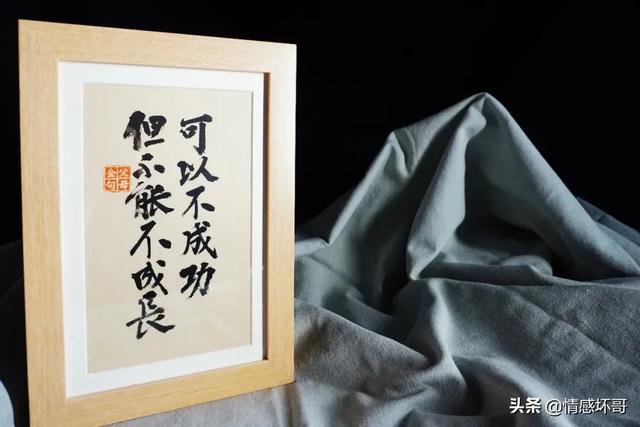 可以不成功
但不能不成長
父母
金句
头条 @情感坏哥